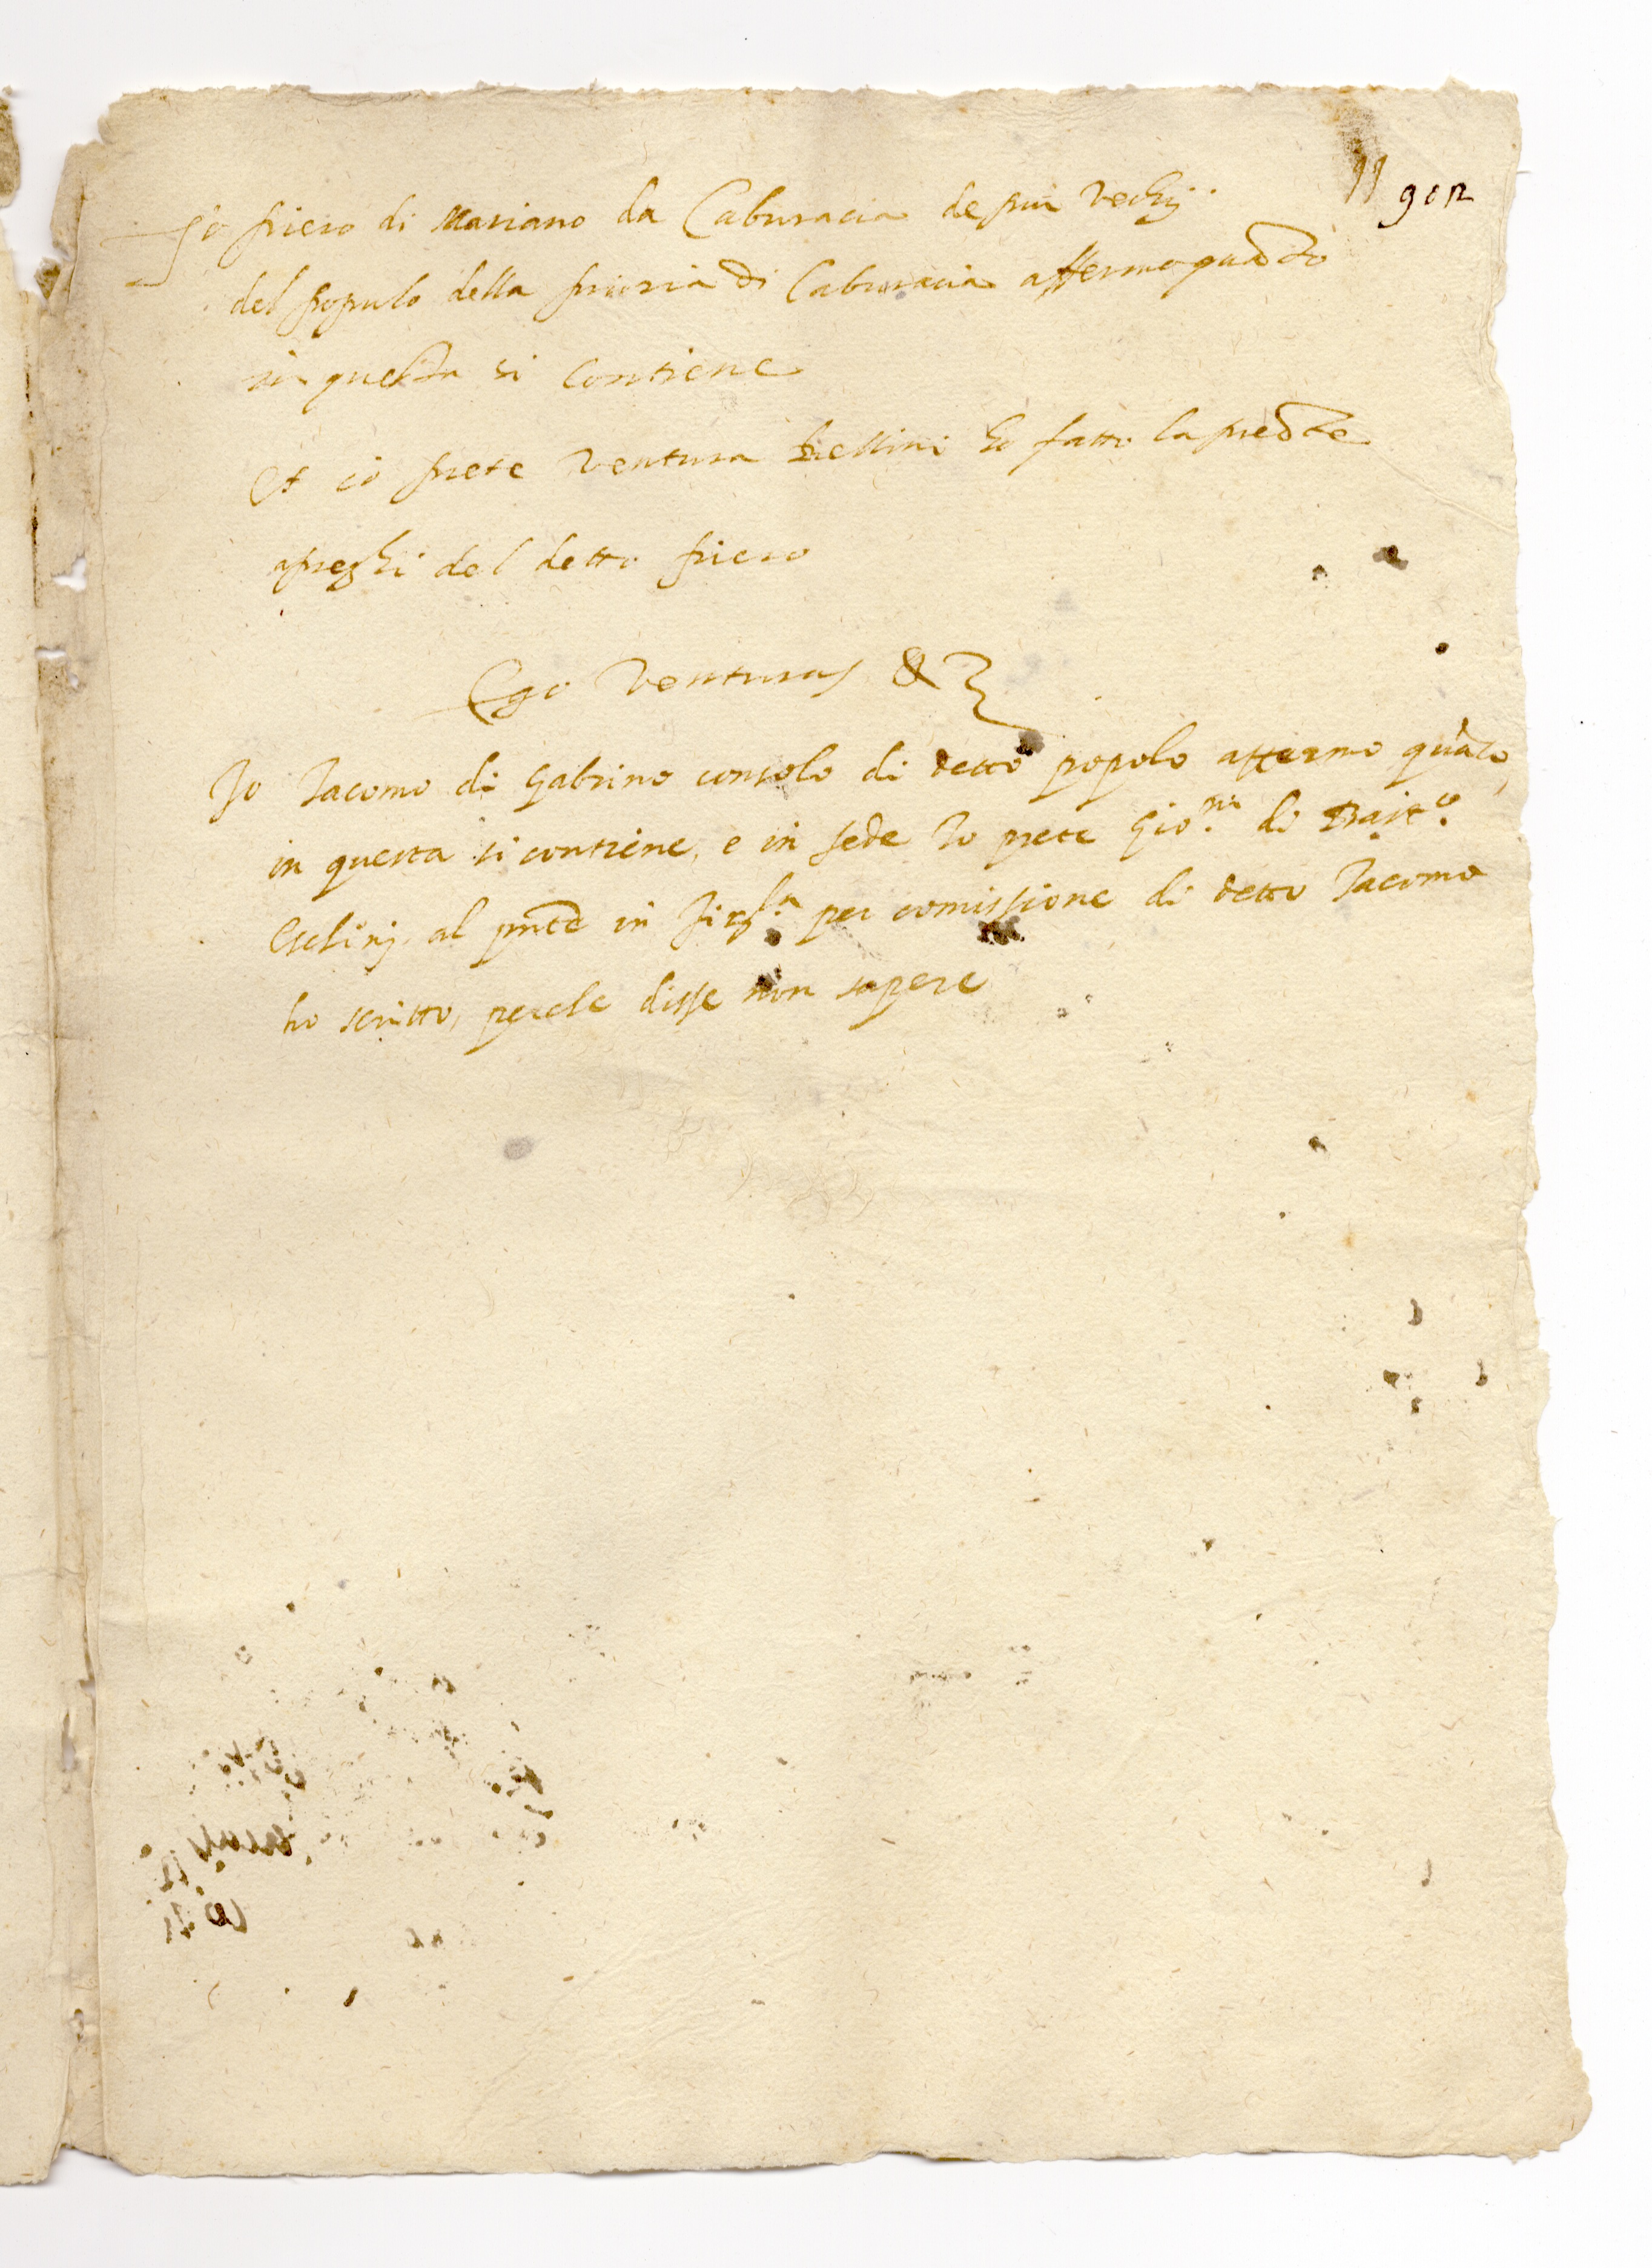 11 901
Jo piero di Mariano da Caburacia de piu vechij
del populo della prioria di Caburacia affermo quāto
in questa si contiene
Et io prete Ventura ho fatto la preste
apreghi del detto piero
Ego Venturas &
Jo Jacomo di Gabrino consolo di detto popolo affermo quāto
in questa si contiene, e in fede Jo prete Gio.ni di Bast.o
al pnte in per comissione di detto Jacomo
ho scritto, perche disse non sapere